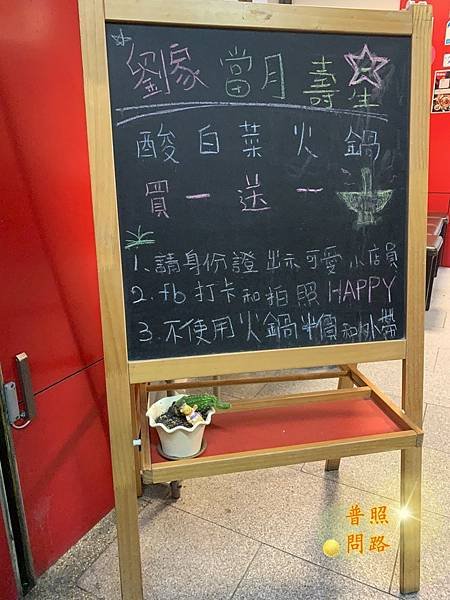 劉家當月壽星
酸白菜火鍋
買一送一
1、請身份證出示可愛小店員
2. fb打卡和拍照HAPPY
3、不使用火鍋半價和外帶
普照
問路